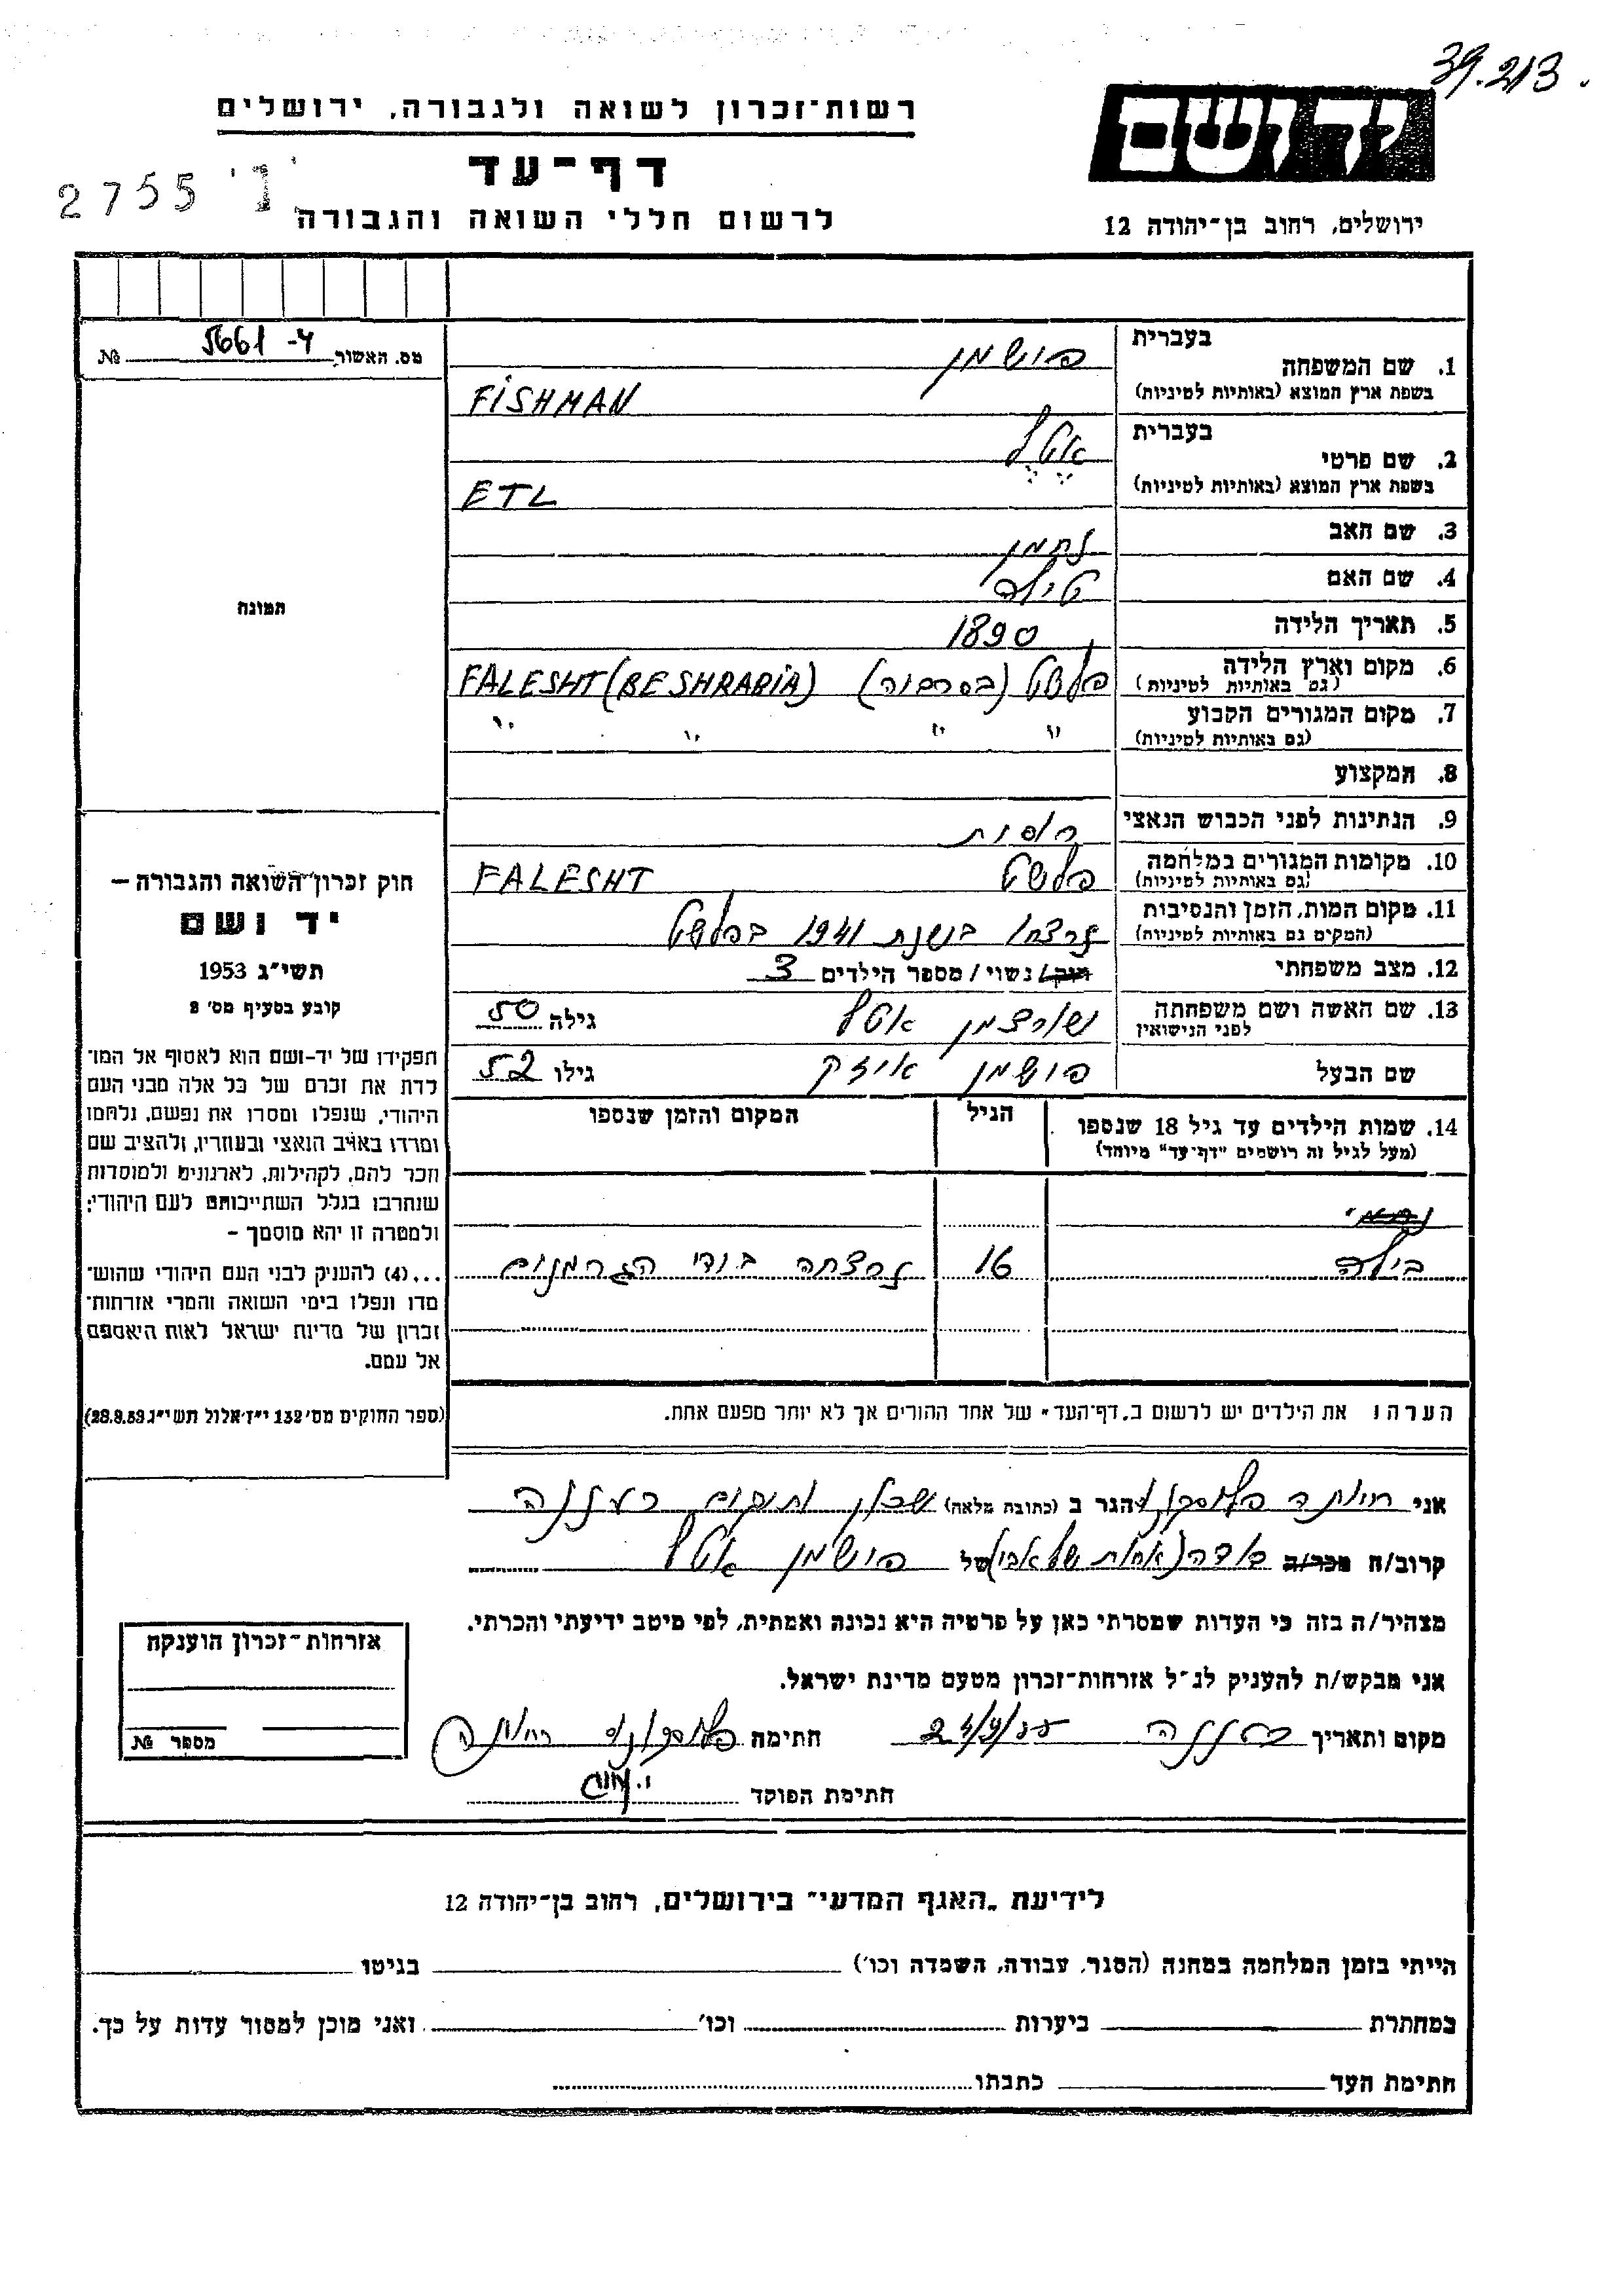 39.213.
רשות־זכרון לשואה ולגבורה, ירושלים
יד ושם
דף־עד
2755 'ו
לרשום חללי השואה והגבורה
ירושלים, רחוב בן־יהודה 12
מס. האשור 5661-4 №
1. שם המשפחה
בעברית
פישמן
בשפת ארץ המוצא (באותיות לטיניות)
FISHMAN
2. שם פרטי
בעברית
אטל
בשפת ארץ המוצא (באותיות לטיניות)
ETL
3. שם האב נחמן
4. שם האם
5. תאריך הלידה 1890
6. מקום וארץ הלידה פלשט (בסרביה) FALESHT (BESHRABIA)
(גם באותיות לטיניות)
7. מקום המגורים הקבוע " " " "
(גם באותיות לטיניות)
8. המקצוע
9. הנתינות לפני הכבוש הנאצי רוסית
10. מקומות המגורים במלחמה פלשט FALESHT
(גם באותיות לטיניות)
11. מקום המות, הזמן והנסיבות נרצחו בשנת 1941 בפלשט
(המקום גם באותיות לטיניות)
12. מצב משפחתי רווק/ נשוי/ מספר הילדים 3
13. שם האשה ושם משפחתה שורצמן אטל גילה 50
לפני הנישואין
שם הבעל פישמן איזק גילו 52
14. שמות הילדים עד גיל 18 שנספו הגיל המקום והזמן שנספו
(מעל לגיל זה רושמים "דף־עד" מיוחד)
בילה 16 נרצחה בידי הגרמנים
הערה: את הילדים יש לרשום ב"דף־העד" של אחד ההורים אך לא יותר מפעם אחת.
תמונה
חוק זכרון השואה והגבורה –
יד ושם
תשי"ג 1953
קובע בסעיף מס' 2
תפקידו של יד־ושם הוא לאסוף אל המו־
לדת את זכרם של כל אלה מבני העם
היהודי, שנפלו ומסרו את נפשם, נלחמו
ומרדו באויב הנאצי ובעוזריו, ולהציב שם
וזכר להם, לקהילות, לארגונים ולמוסדות
שנחרבו בגלל השתייכותם לעם היהודי;
ולמטרה זו יהא מוסמך –
...(4) להעניק לבני העם היהודי שהוש־
מדו ונפלו בימי השואה והמרי אזרחות־
זכרון של מדינת ישראל לאות היאספם
אל עמם.
(ספר החוקים מס' 132 י"ז אלול תשי"ג 28.8.53)
אני הגר ב (כתובת מלאה) שכון ותיקים רעננה
קרוב/ה מכר/ה דודה (אחות של אבי) של פישמן אטל
מצהיר/ה בזה כי העדות שמסרתי כאן על פרטיה היא נכונה ואמתית, לפי מיטב ידיעתי והכרתי.
אני מבקש/ת להעניק לנ"ל אזרחות־זכרון מטעם מדינת ישראל.
מקום ותאריך רעננה חתימה
חתימת הפוקד
אזרחות־זכרון הוענקה
מספר №
לידיעת "האגף המדעי" בירושלים, רחוב בן־יהודה 12
הייתי בזמן המלחמה במחנה (הסגר, עבודה, השמדה וכו') בגיטו
במחתרת ביערות וכו' ואני מוכן למסור עדות על כך.
חתימת העד כתבתו